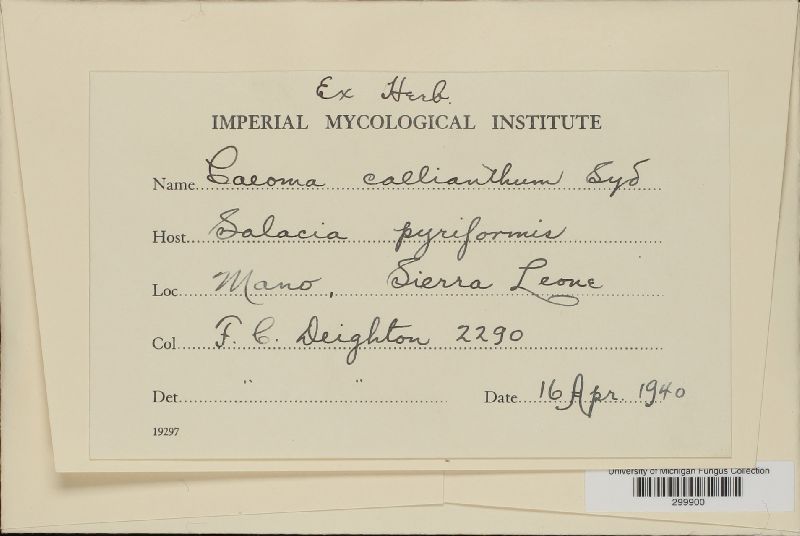 Ex Herb.
IMPERIAL MYCOLOGICAL INSTITUTE
Name Caeoma callianthum Syd
Host Salacia pyriformis
Loc Mano, Sierra Leone
Col F. C. Deighton 2290
Det " " Date 16 Apr. 1940
19297
University of Michigan Fungus Collection
299900